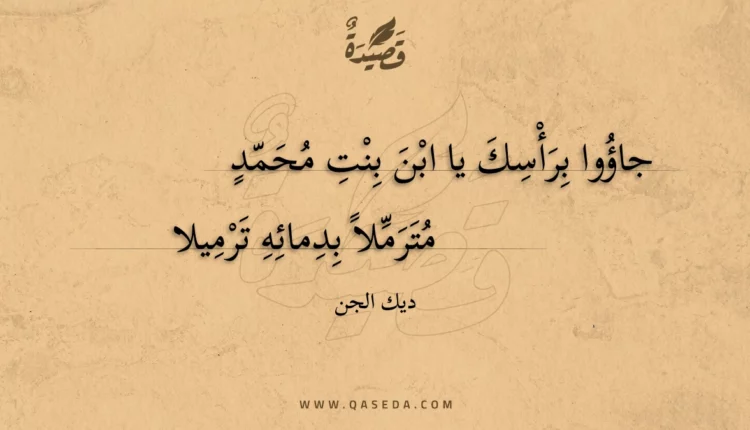 قَصِيْدَةٌ
جاؤُوا بِرَأْسِكَ يا ابْنَ بِنْتِ مُحَمّدٍ
مُتَرَمِّلاً بِدِمائِهِ تَرْمِيلا
ديك الجن
WWW.QASEDA.COM